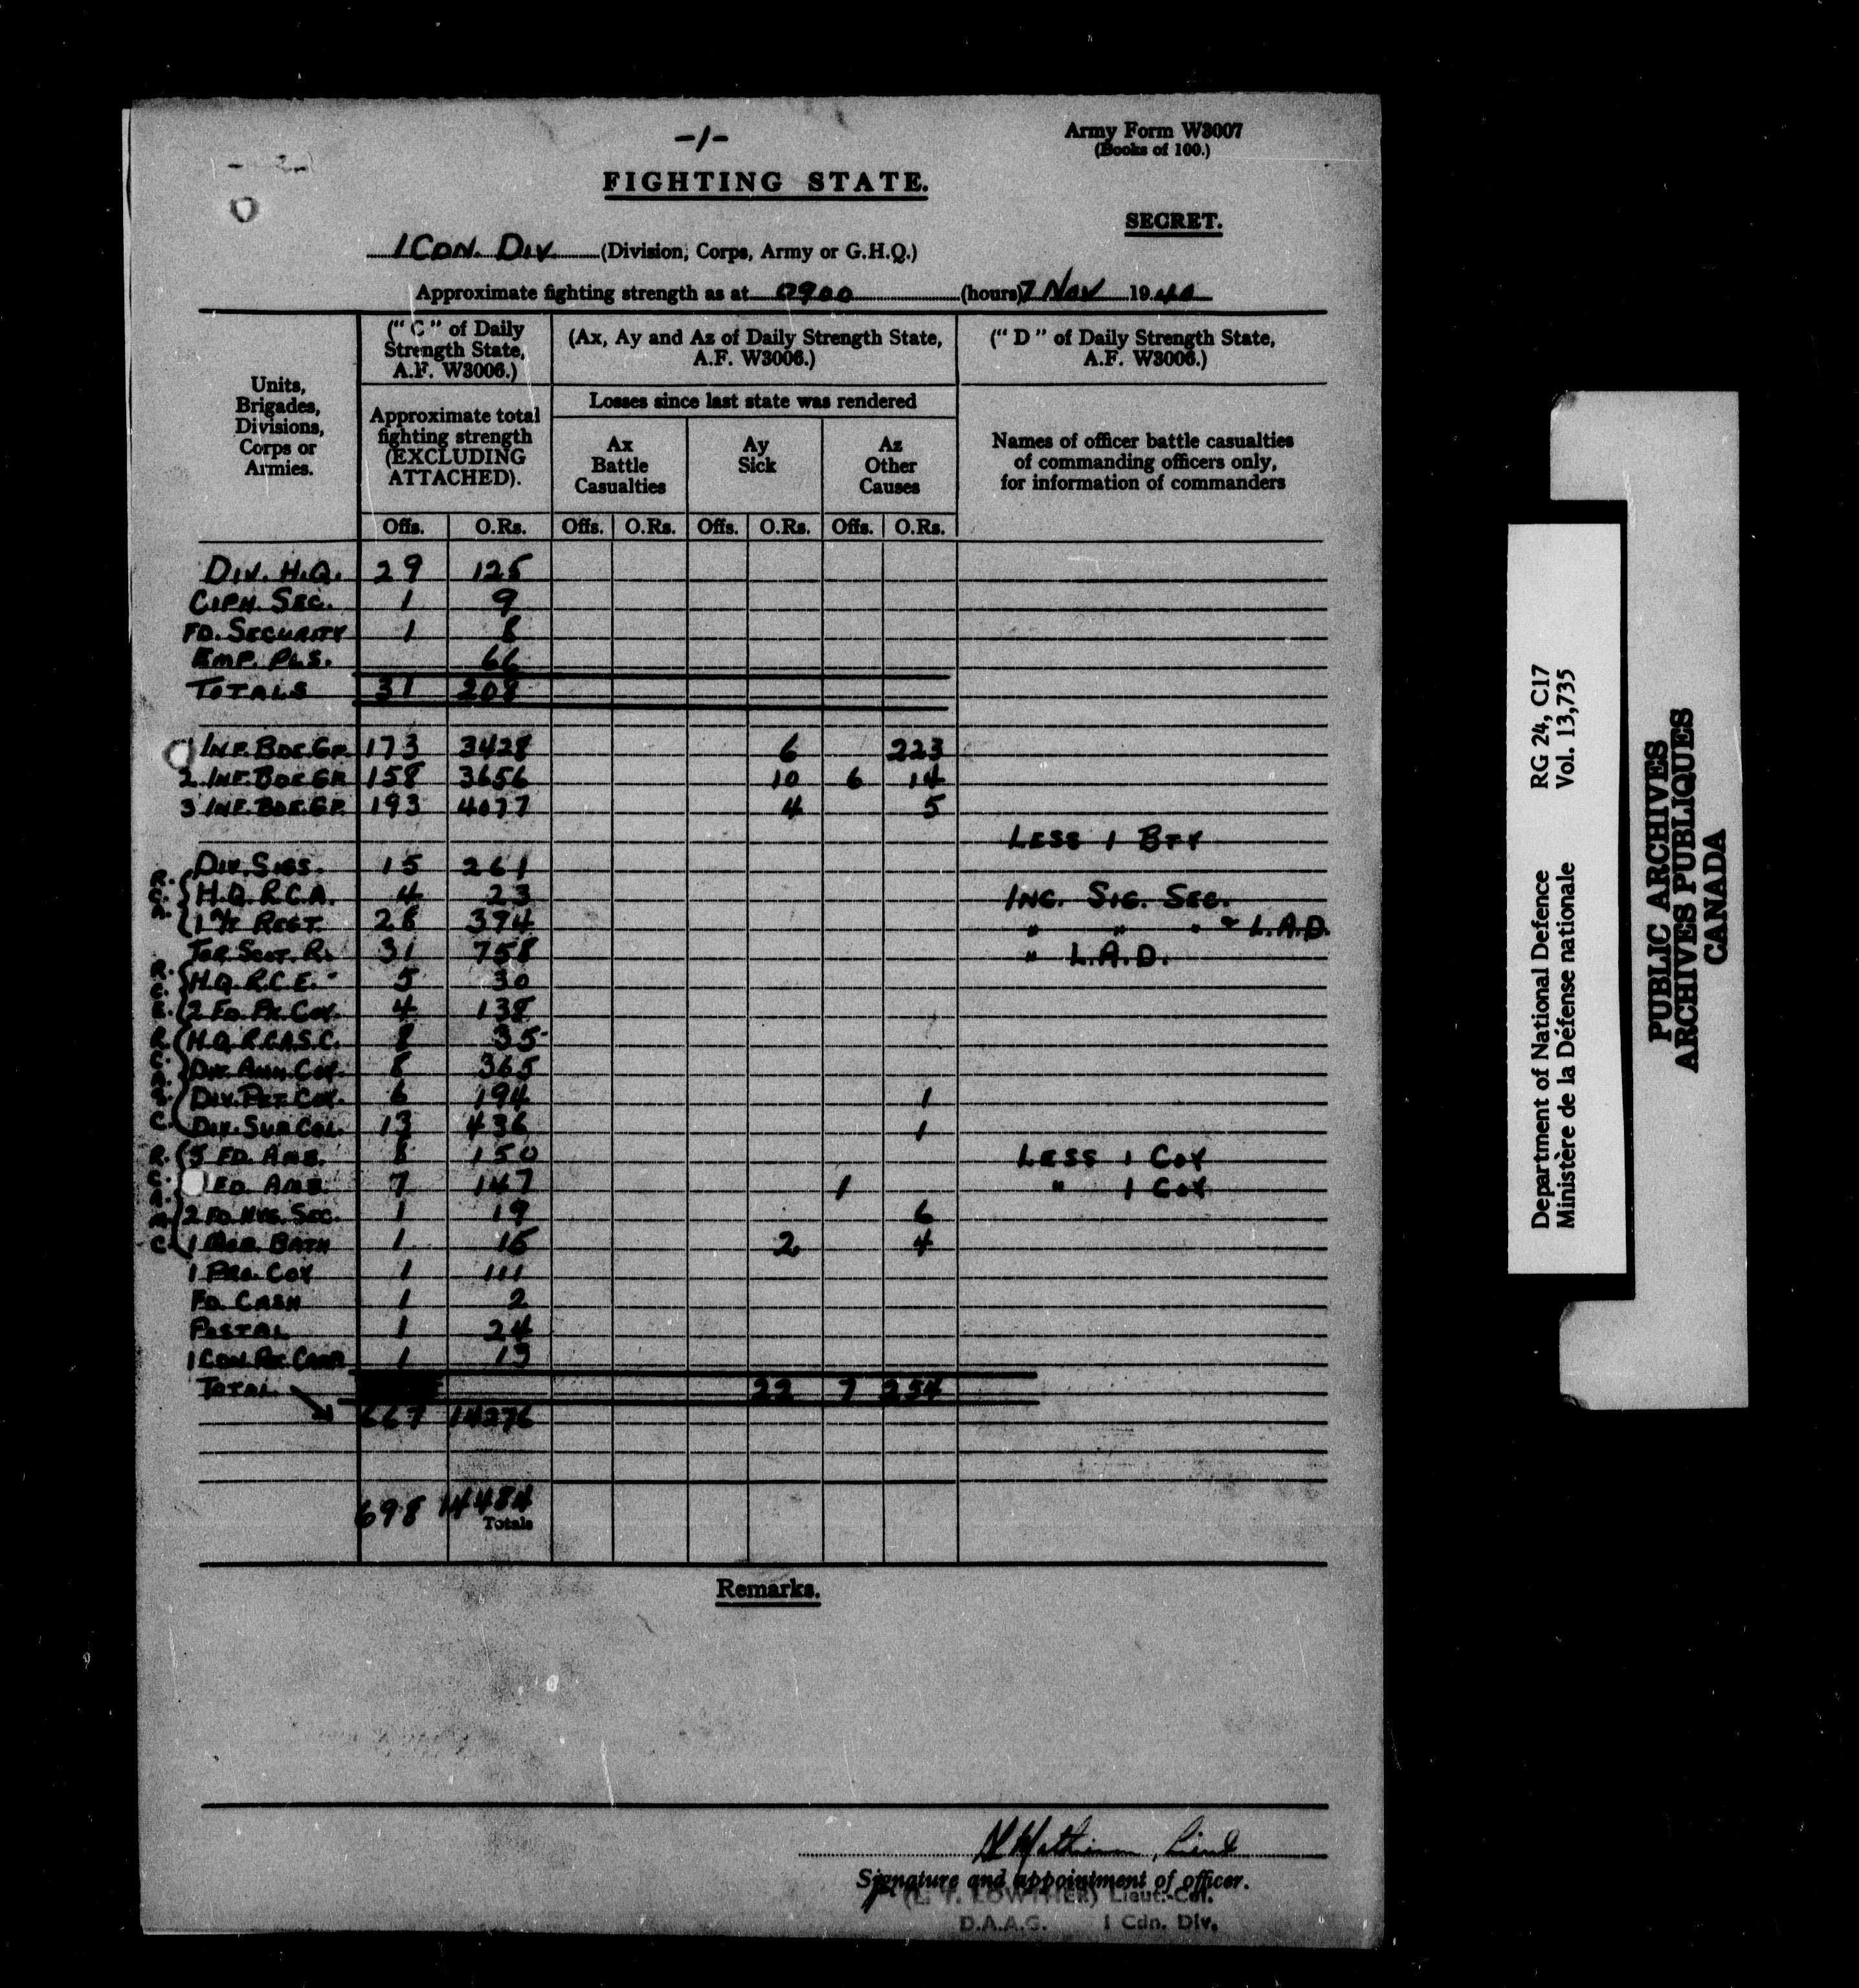 -1-
Army Form W3007
(Books of 100.)
FIGHTING STATE.
SECRET.
1 CDN. DIV. (Division, Corps, Army or G.H.Q.)
Approximate fighting strength as at 0900 (hours) 7 Nov 1940
Units, Brigades, Divisions, Corps or Armies.
("C" of Daily Strength State, A.F. W3006.)
(Ax, Ay and Az of Daily Strength State, A.F. W3006.)
("D" of Daily Strength State, A.F. W3006.)
Approximate total fighting strength (EXCLUDING ATTACHED).
Losses since last state was rendered
Ax Battle Casualties
Ay Sick
Az Other Causes
Names of officer battle casualties of commanding officers only, for information of commanders
Offs. O.Rs. Offs. O.Rs. Offs. O.Rs. Offs. O.Rs.
DIV. H.Q. 29 125
CIPH. SEC. 1 9
FD. SECURITY 1 8
EMP. PLS. 66
TOTALS 31 208
1 INF. BDE. GP. 173 3428 6 223
2 INF. BDE. GP. 158 3656 10 6 14
3 INF. BDE. GP. 193 4077 4 5
LESS 1 BTY
DIV. SIGS. 15 261
R.C.A. H.Q. R.C.A. 4 23 INC. SIG. SEC.
1 A/T REGT. 28 394 " " " & L.A.D.
TOR. SCOT. R. 31 758 " L.A.D.
R.C.E. H.Q. R.C.E. 5 30
2 FD. PK. COY. 4 138
R.C.A.S.C. H.Q. R.C.A.S.C. 8 35
DIV. AMM. COY. 8 365
DIV. PET. COY. 6 194 1
DIV. SUP. COL. 13 436 1
R.C.A.M.C. 5 FD. AMB. 8 150 LESS 1 COY
FD. AMB. 7 147 1 " 1 COY
2 FD. HYG. SEC. 1 19 6
1 MOB. BATH 1 15 2 4
1 PRO. COY 1 111
FD. CASH 1 2
POSTAL 1 24
1 CDN. REC. CAMP 1 13
TOTAL 22 7 254
667 14276
698 14484
Totals
Remarks.
Lieut
Signature and appointment of officer.
(L. T. LOWTHER) Lieut.-Col.
D.A.A.G. 1 Cdn. Div.
Department of National Defence RG 24, C17
Ministère de la Défense nationale Vol. 13,735
PUBLIC ARCHIVES
ARCHIVES PUBLIQUES
CANADA